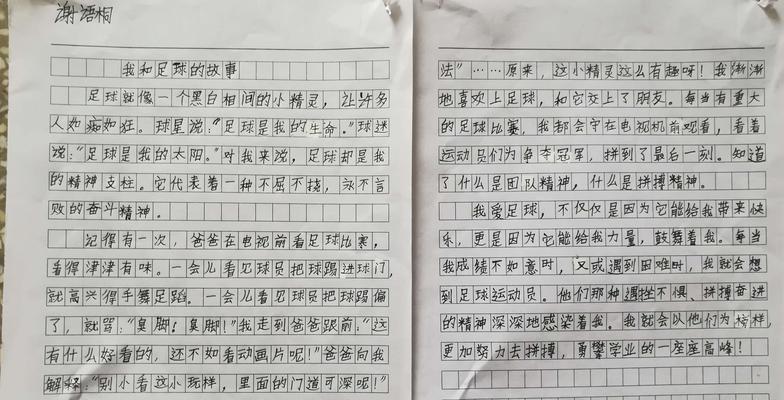 谢语桐
我和足球的故事
足球就像一个黑白相间的小精灵，让许多
人如痴如狂。球星说：“足球是我的生命。”球迷
说：“足球是我的太阳。”对我来说，足球却是我
的精神支柱。它代表着一种不屈不挠，永不言
败的奋斗精神。
记得有一次，爸爸在电视前看足球比赛，
看得津津有味。一会儿看见球员把球踢进球门，
就高兴得手舞足蹈。一会儿看见球员把球踢偏
了，就骂：“臭脚！臭脚！”我走到爸爸跟前：“这
有什么好看的，还不如看动画片呢！”爸爸向我
解释：“别小看这小玩样，里面的门道可深呢！”
法”……原来，这小精灵这么有趣呀！我渐渐
地喜欢上足球，和它交上了朋友。每当有重大
的足球比赛，我都会守在电视机前观看，看着
运动员们为争夺冠军，拼到了最后一刻。知道
了什么是团队精神，什么是拼搏精神。
我爱足球，不仅仅是因为它能给我带来快
乐，更是因为它能给我力量，鼓舞着我。每当
我成绩不如意时，又或遇到困难时，我就会想
到足球运动员。他们那种遇挫不惧、拼搏奋进
的精神深深地感染着我。我就会以他们为榜样，
更加努力去拼搏，勇攀学业的一座座高峰！